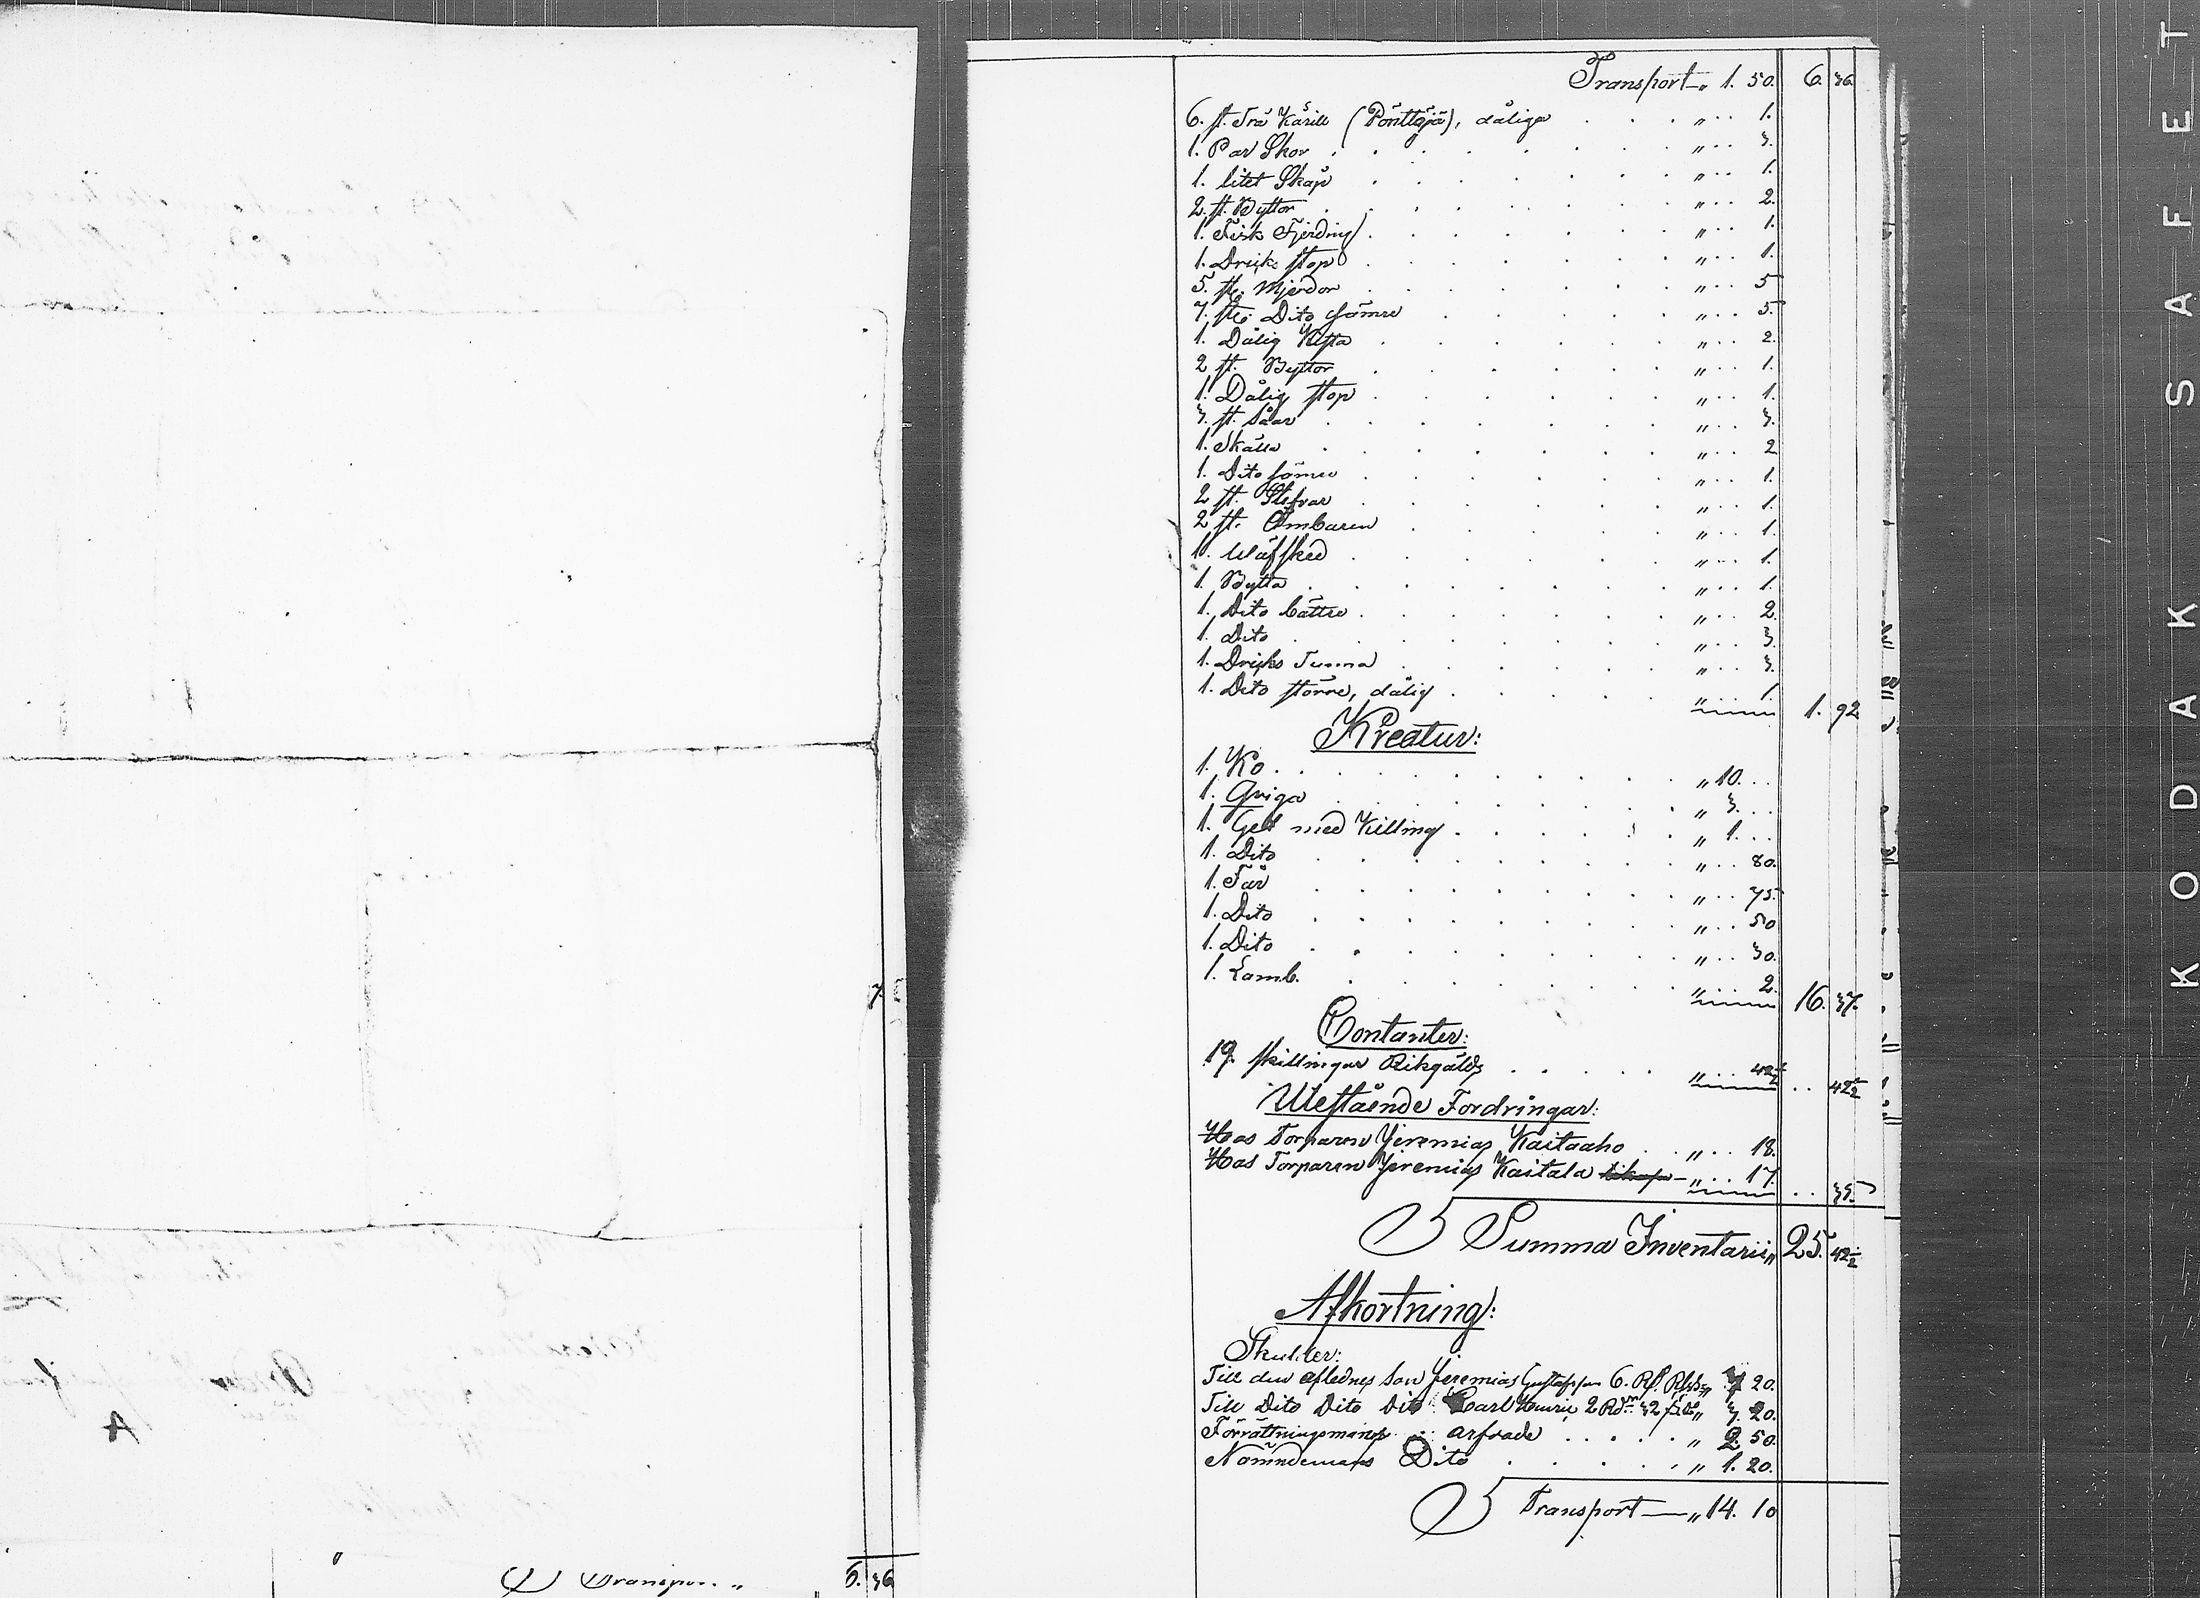 Transport „ 1. 50. 6. 36.
6. st. Trä Kärill (Pönttöjä), dåliga „ 1.
1. Par Skor „ 3.
1. litet Skåp „ 1.
2. st. Byttor „ 2.
1. Fisk Fjerding „ 1.
1. Dricks stop „ 1.
5. st. Mjerdor „ 5
7. st. Dito sämre „ 5.
1. Dålig Kista „ 2.
2 st. Byttor „ 1.
1. Dålig stop „ 1.
3. st. Såar „ 3.
1. Skålla „ 2
1. Dito sämre „ 1.
2 st. Stefvar „ 1.
2 st. Ämbaren „ 1.
1. Wäfsked „ 1.
1. Bytta „ 1.
1. Dito bättre „ 2.
1. Dito „ 3.
1. Dricks Tunna „ 3.
1. Dito större, dålig „ 1. 1. 92
Kreatur:
1. Ko „ 10.
1. Qviga „ 3.
1. Get med Killing „ 1.
1. Dito „ 80.
1. Får „ 75.
1. Dito „ 50
1. Dito „ 30.
1. Lamb. „ 2. 16. 37.
Contanter:
19. skillingar Riksgälds „ 42½ 42½
Utestående Fordringar:
Hos Torparen Jeremias Kaitaaho „ 18.
Hos Torparen Jeremias Kaitala „ 17. 35.
Summa Inventarii „ 25. 42½
Afkortning:
Skulder:
Till den aflednes Son Jeremias Gustafsson 6. Rd. „ 7 20.
Till Dito Dito Dito Carl Henric 2 Rd. 32 „ 3. 20.
Förrättningsmans arfvode „ 2. 50.
Nämndemans Dito „ 1. 20.
Transport „ 14. 10
Transpor. „ 6. 36
KODAK SAFET